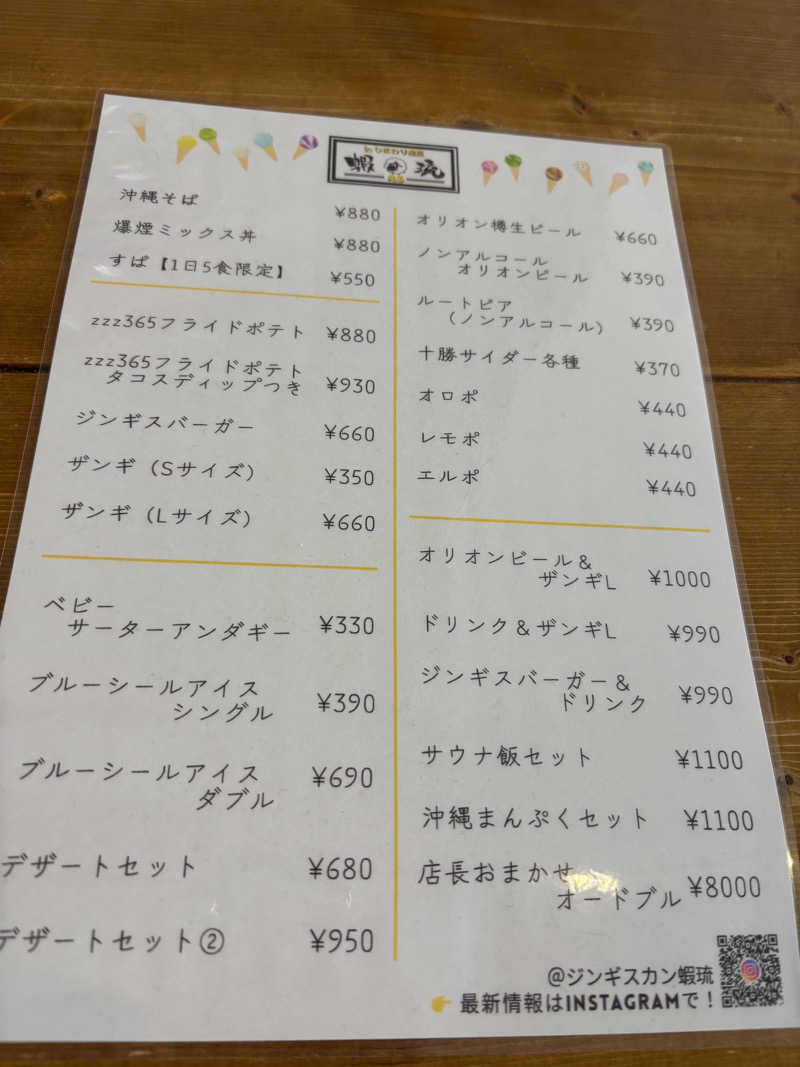 蝦 琉
沖縄そば ¥880
爆煙ミックス丼 ¥880
すば【1日5食限定】 ¥550
zzz365フライドポテト ¥880
zzz365フライドポテト
タコスディップつき ¥930
ジンギスバーガー ¥660
ザンギ（Sサイズ） ¥350
ザンギ（Lサイズ） ¥660
ベビー
サーターアンダギー ¥330
ブルーシールアイス
シングル ¥390
ブルーシールアイス
ダブル ¥690
デザートセット ¥680
デザートセット② ¥950
オリオン樽生ビール ¥660
ノンアルコール
オリオンビール ¥390
ルートビア
（ノンアルコール） ¥390
十勝サイダー各種 ¥370
オロポ ¥440
レモポ ¥440
エルポ ¥440
オリオンビール＆
ザンギL ¥1000
ドリンク＆ザンギL ¥990
ジンギスバーガー＆
ドリンク ¥990
サウナ飯セット ¥1100
沖縄まんぷくセット ¥1100
店長おまかせ
オードブル ¥8000
@ジンギスカン蝦琉
👉 最新情報はINSTAGRAMで！